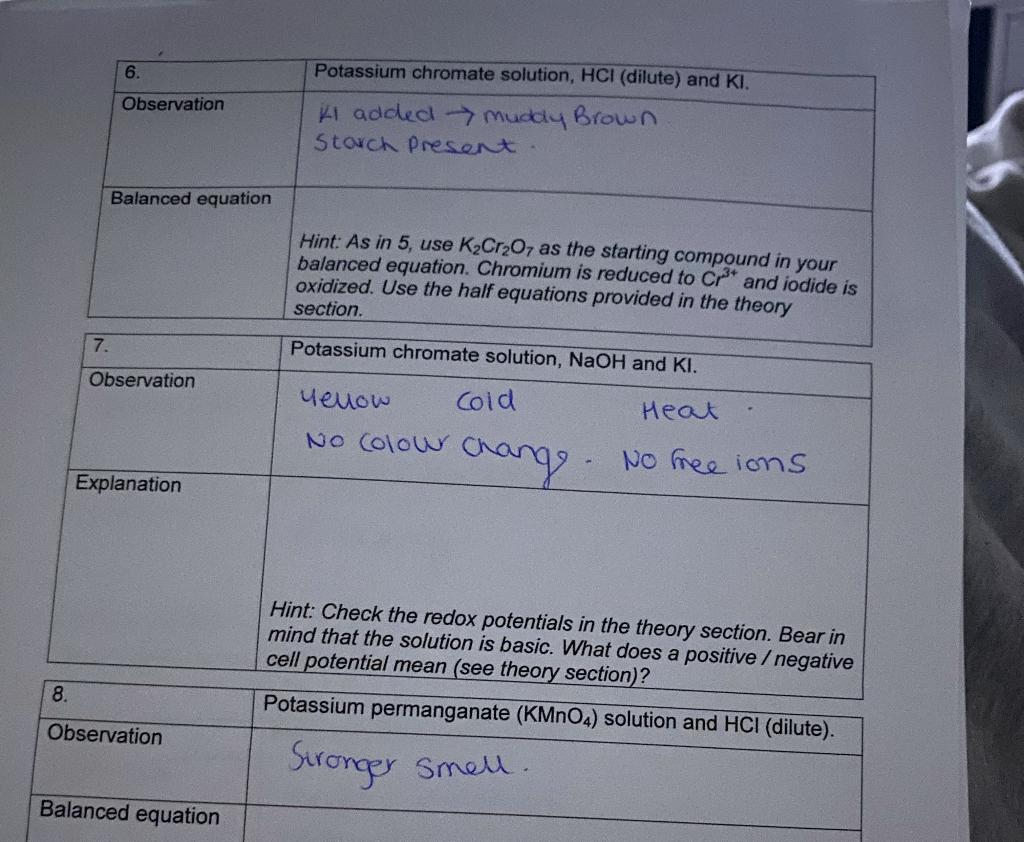 6.
Potassium chromate solution, HCl (dilute) and KI.
Observation
KI added → muddy Brown
Starch Present.
Balanced equation
Hint: As in 5, use K₂Cr₂O₇ as the starting compound in your
balanced equation. Chromium is reduced to Cr³⁺ and iodide is
oxidized. Use the half equations provided in the theory
section.
7.
Potassium chromate solution, NaOH and KI.
Observation
Yellow Cold Heat.
No Colour Change. No free ions
Explanation
Hint: Check the redox potentials in the theory section. Bear in
mind that the solution is basic. What does a positive / negative
cell potential mean (see theory section)?
8.
Potassium permanganate (KMnO₄) solution and HCl (dilute).
Observation
Stronger smell.
Balanced equation